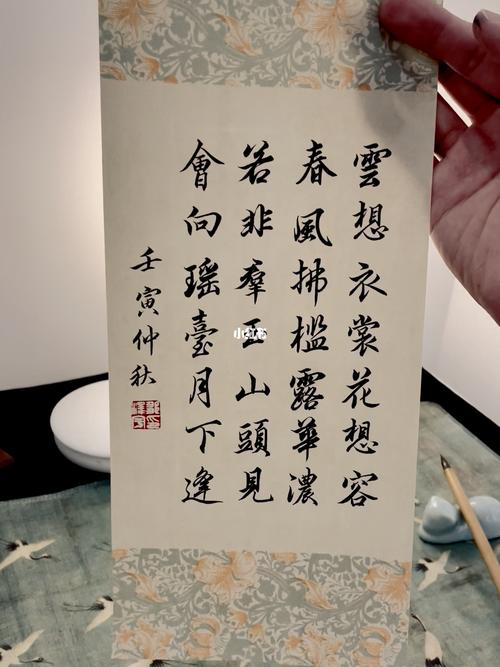 雲想衣裳花想容
春風拂檻露華濃
若非羣玉山頭見
會向瑶臺月下逢
壬寅仲秋
小红书